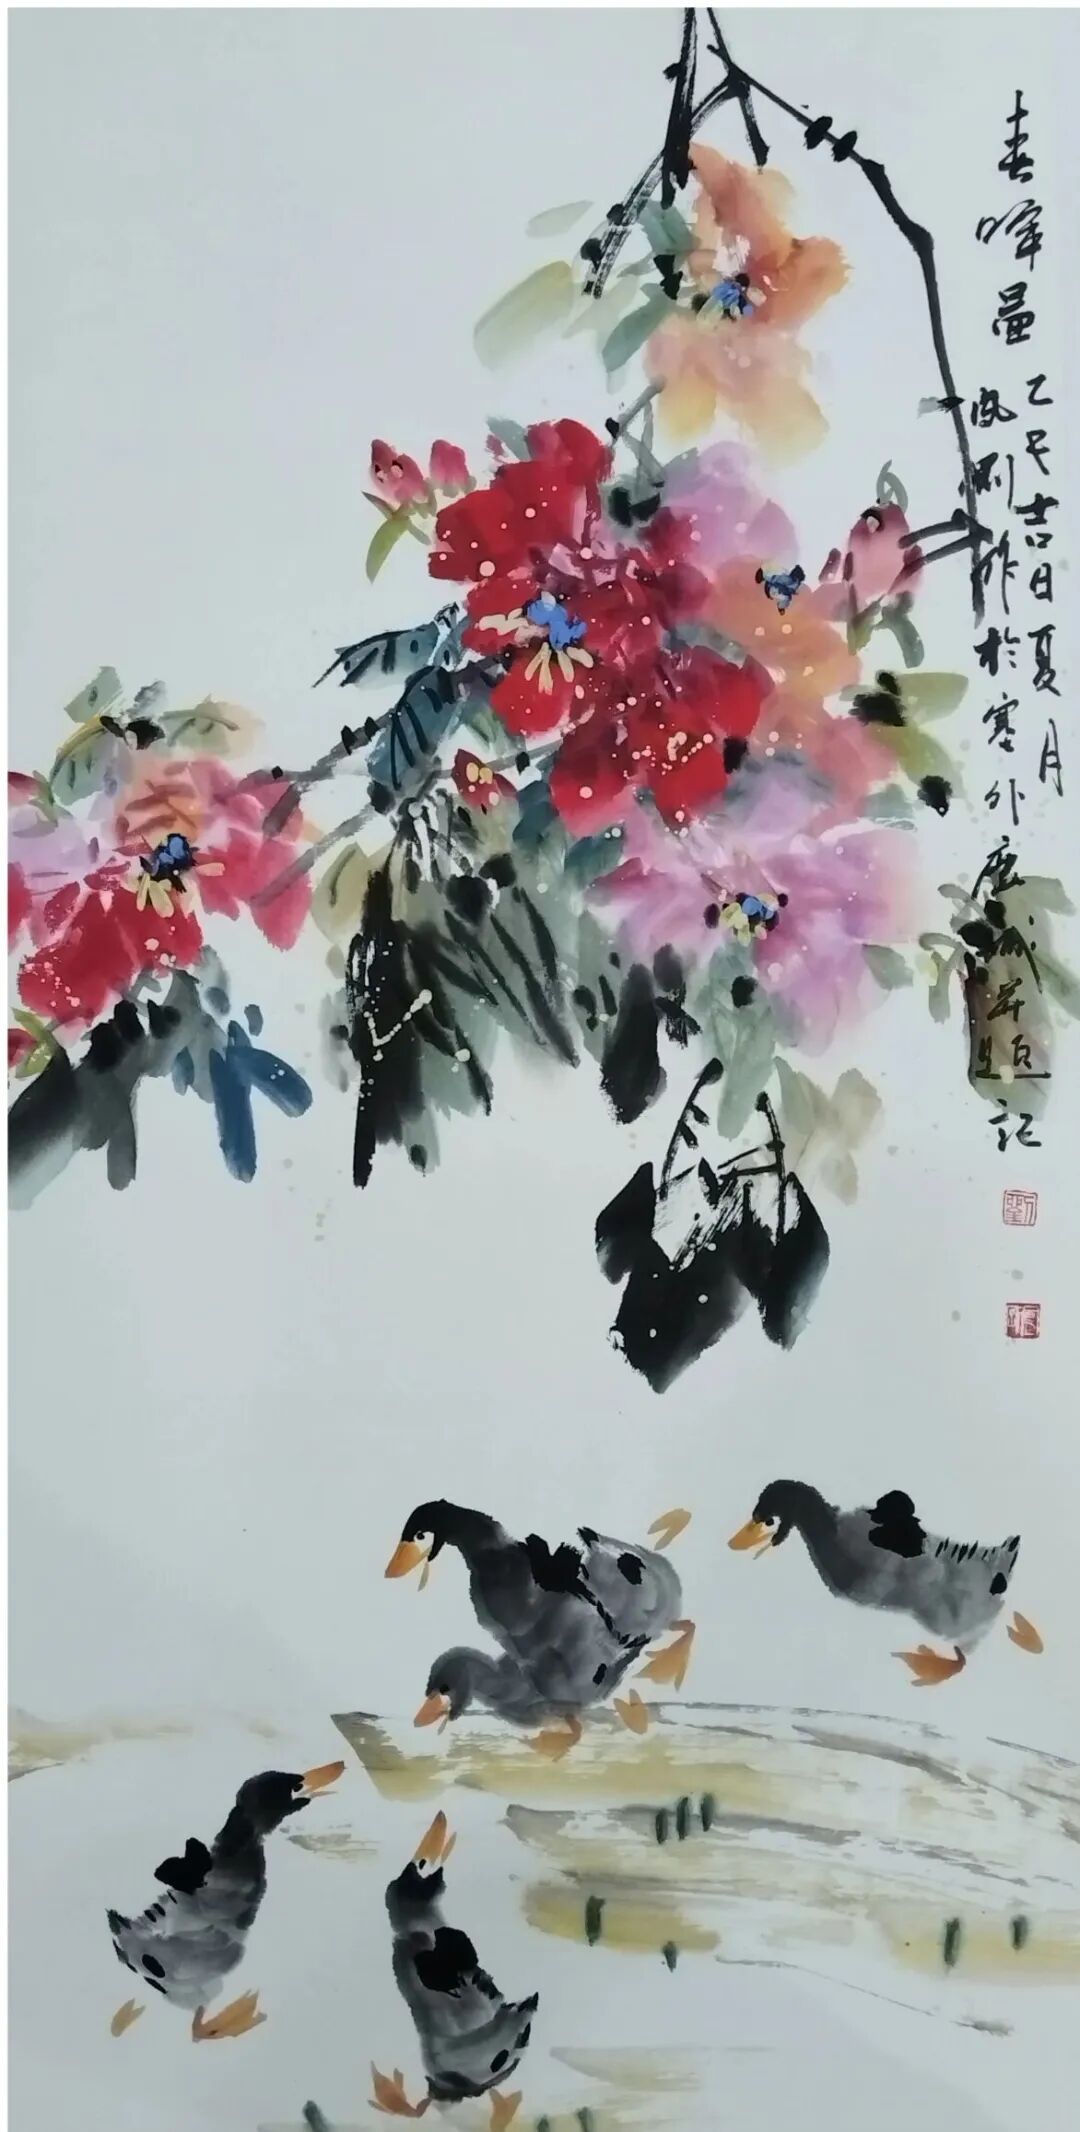 春晖图
乙巳吉日夏月
凤刚作於塞外鹿城并题记